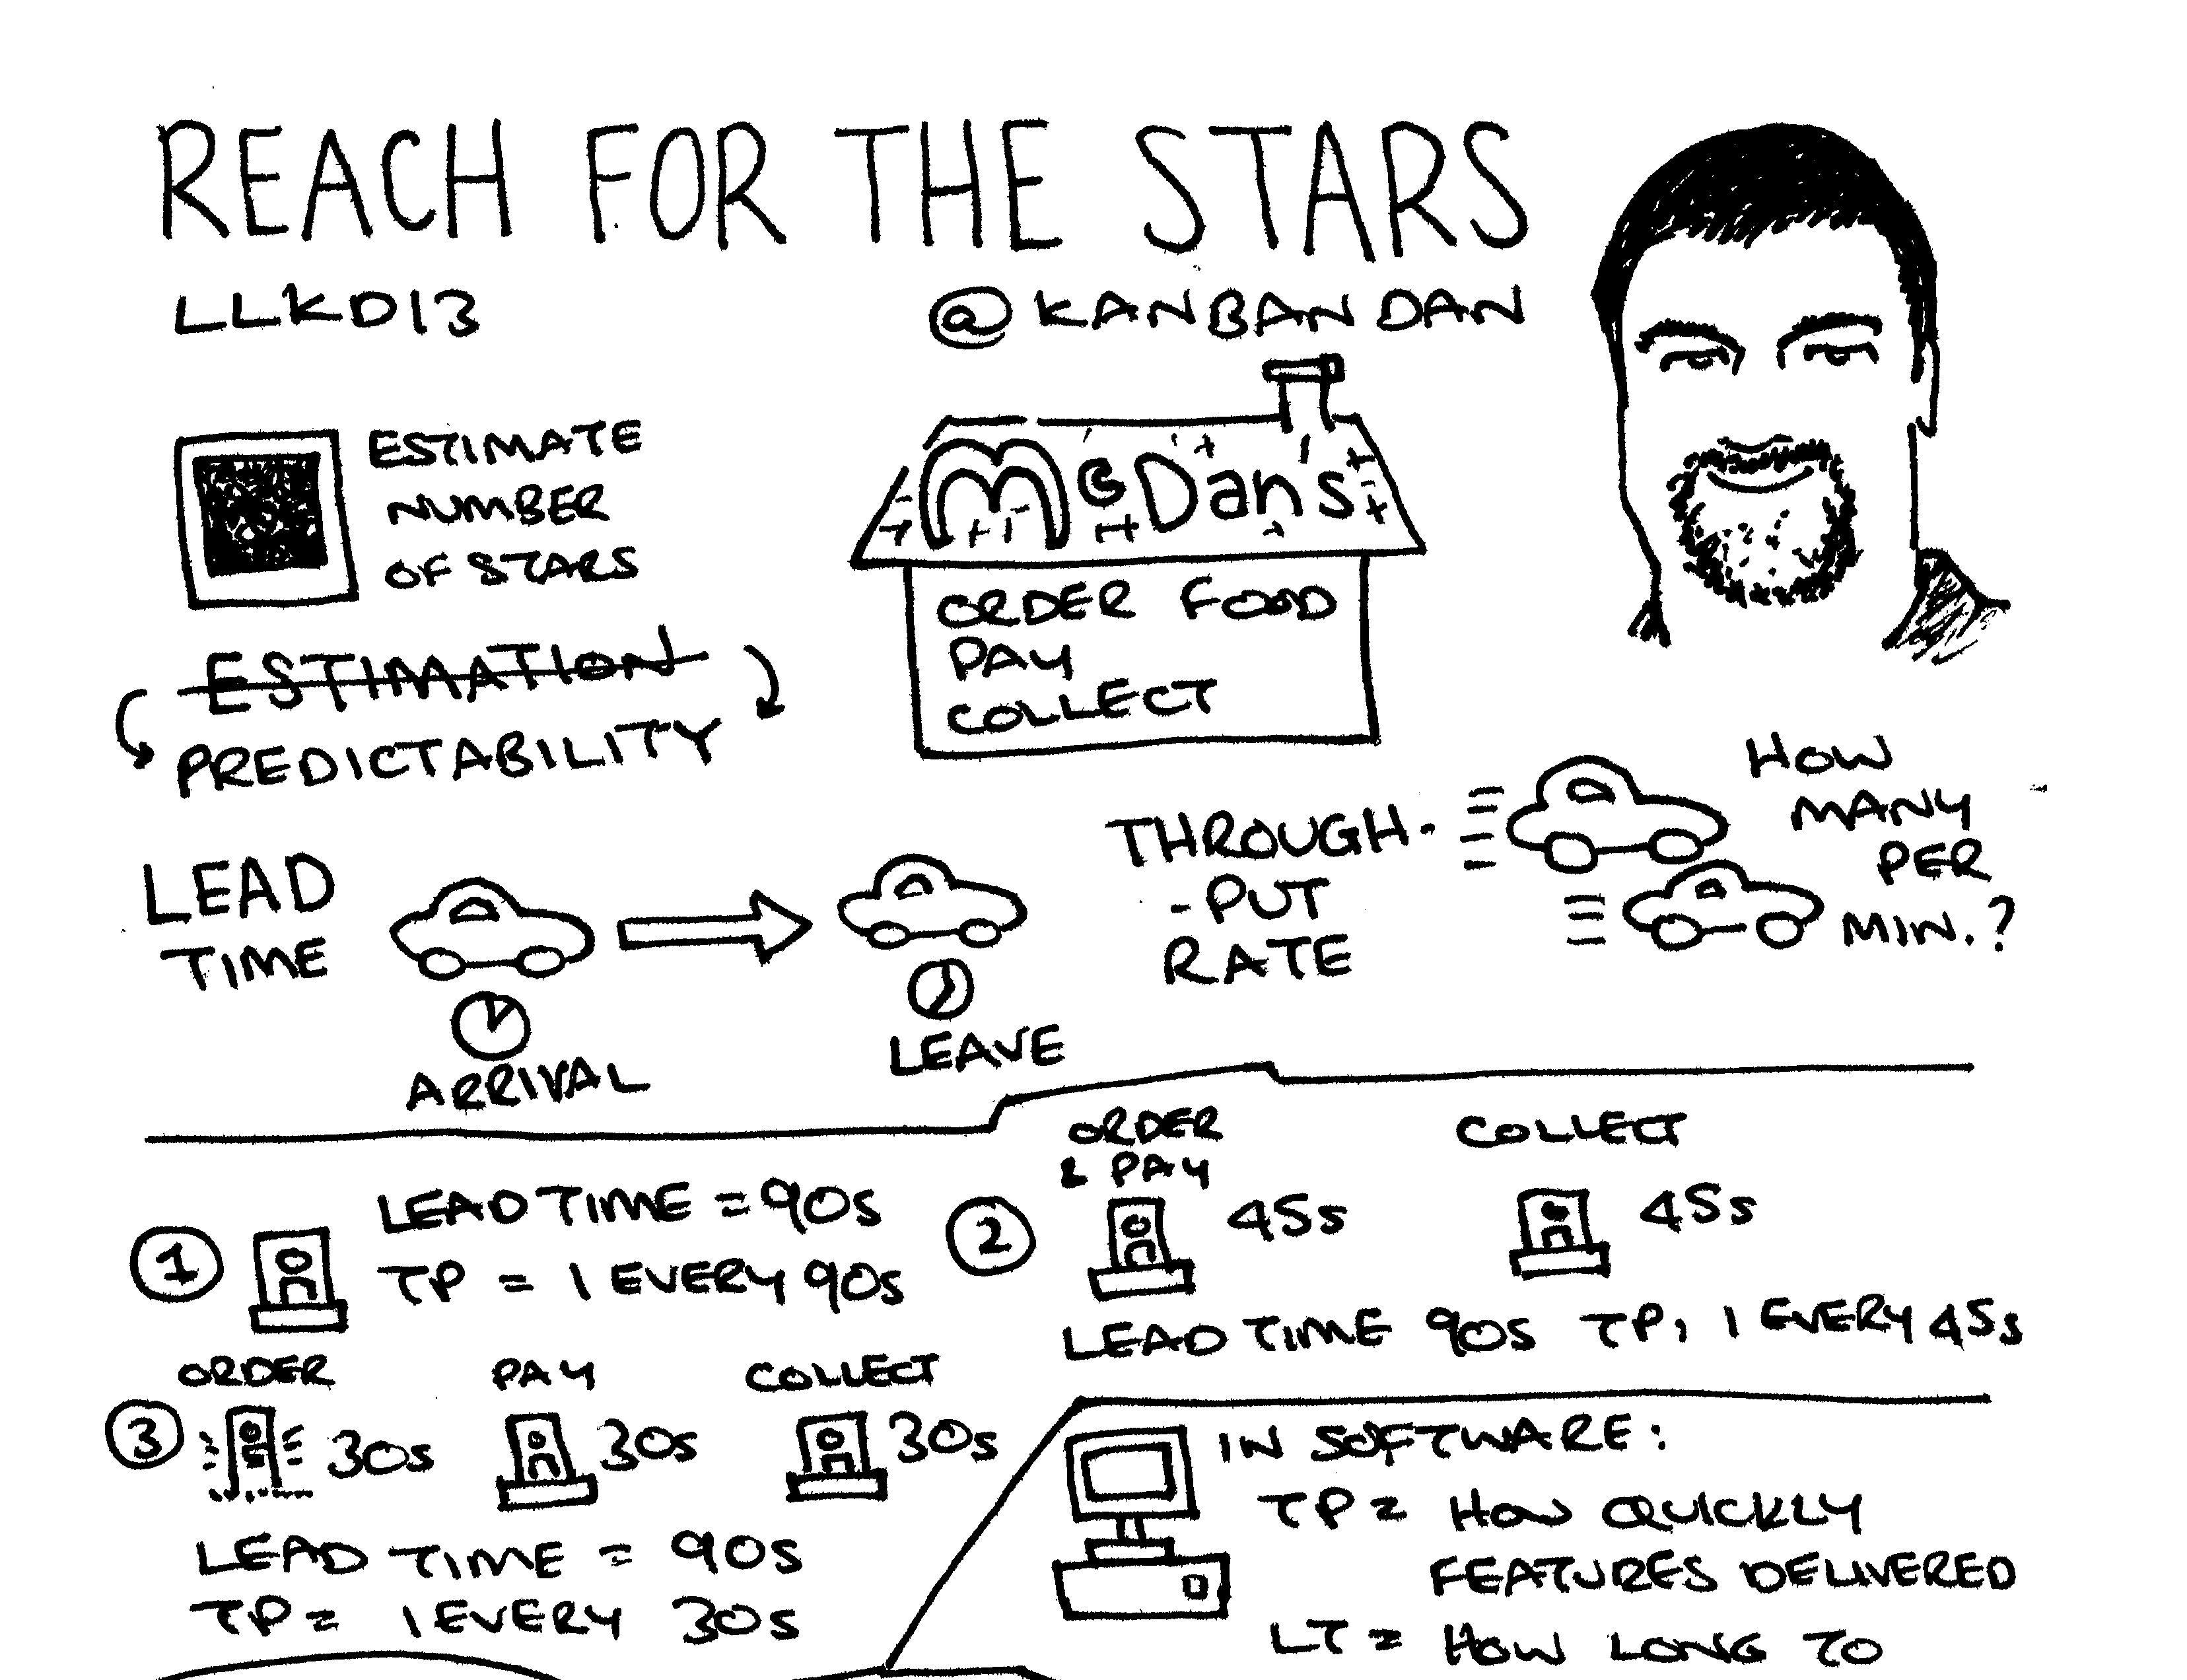 REACH FOR THE STARS
LLKD13
@KANBANDAN
ESTIMATE
NUMBER
OF STARS
ESTIMATION
PREDICTABILITY
McDan's
ORDER FOOD
PAY
COLLECT
LEAD
TIME
ARRIVAL
LEAVE
THROUGH-
-PUT
RATE
HOW
MANY
PER
MIN.?
1
LEAD TIME = 90s
TP = 1 EVERY 90s
2
ORDER
& PAY
45s
COLLECT
45s
LEAD TIME 90s TP, 1 EVERY 45s
3
ORDER
30s
PAY
30s
COLLECT
30s
LEAD TIME = 90s
TP = 1 EVERY 30s
IN SOFTWARE:
TP = HOW QUICKLY
FEATURES DELIVERED
LT = HOW LONG TO